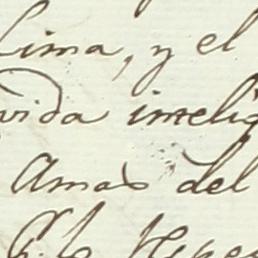 Lima, y el
vida inteli
Amas del